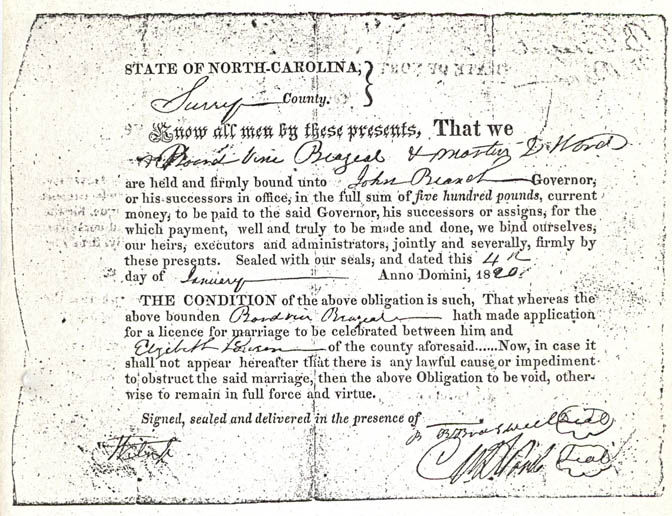 STATE OF NORTH-CAROLINA,
Surry County.
Know all men by these presents, That we
Brazeal & Martin D Word
are held and firmly bound unto John Branch Governor,
or his successors in office, in the full sum of five hundred pounds, current
money, to be paid to the said Governor, his successors or assigns, for the
which payment, well and truly to be made and done, we bind ourselves,
our heirs, executors and administrators, jointly and severally, firmly by
these presents. Sealed with our seals, and dated this 4th
day of January Anno Domini, 1820
THE CONDITION of the above obligation is such, That whereas the
above bounden Brazeal hath made application
for a licence for marriage to be celebrated between him and
Elizabeth of the county aforesaid......Now, in case it
shall not appear hereafter that there is any lawful cause or impediment
to obstruct the said marriage, then the above Obligation to be void, other-
wise to remain in full force and virtue.
Signed, sealed and delivered in the presence of
Seal
Seal